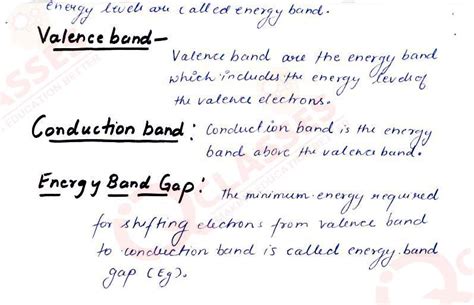 energy levels are called energy band.
Valence band— Valence band are the energy band
which includes the energy level of
the valence electrons.
Conduction band: Conduction band is the energy
band above the valence band.
Energy Band Gap: The minimum energy required
for shifting electrons from valence band
to conduction band is called energy band
gap (Eg).